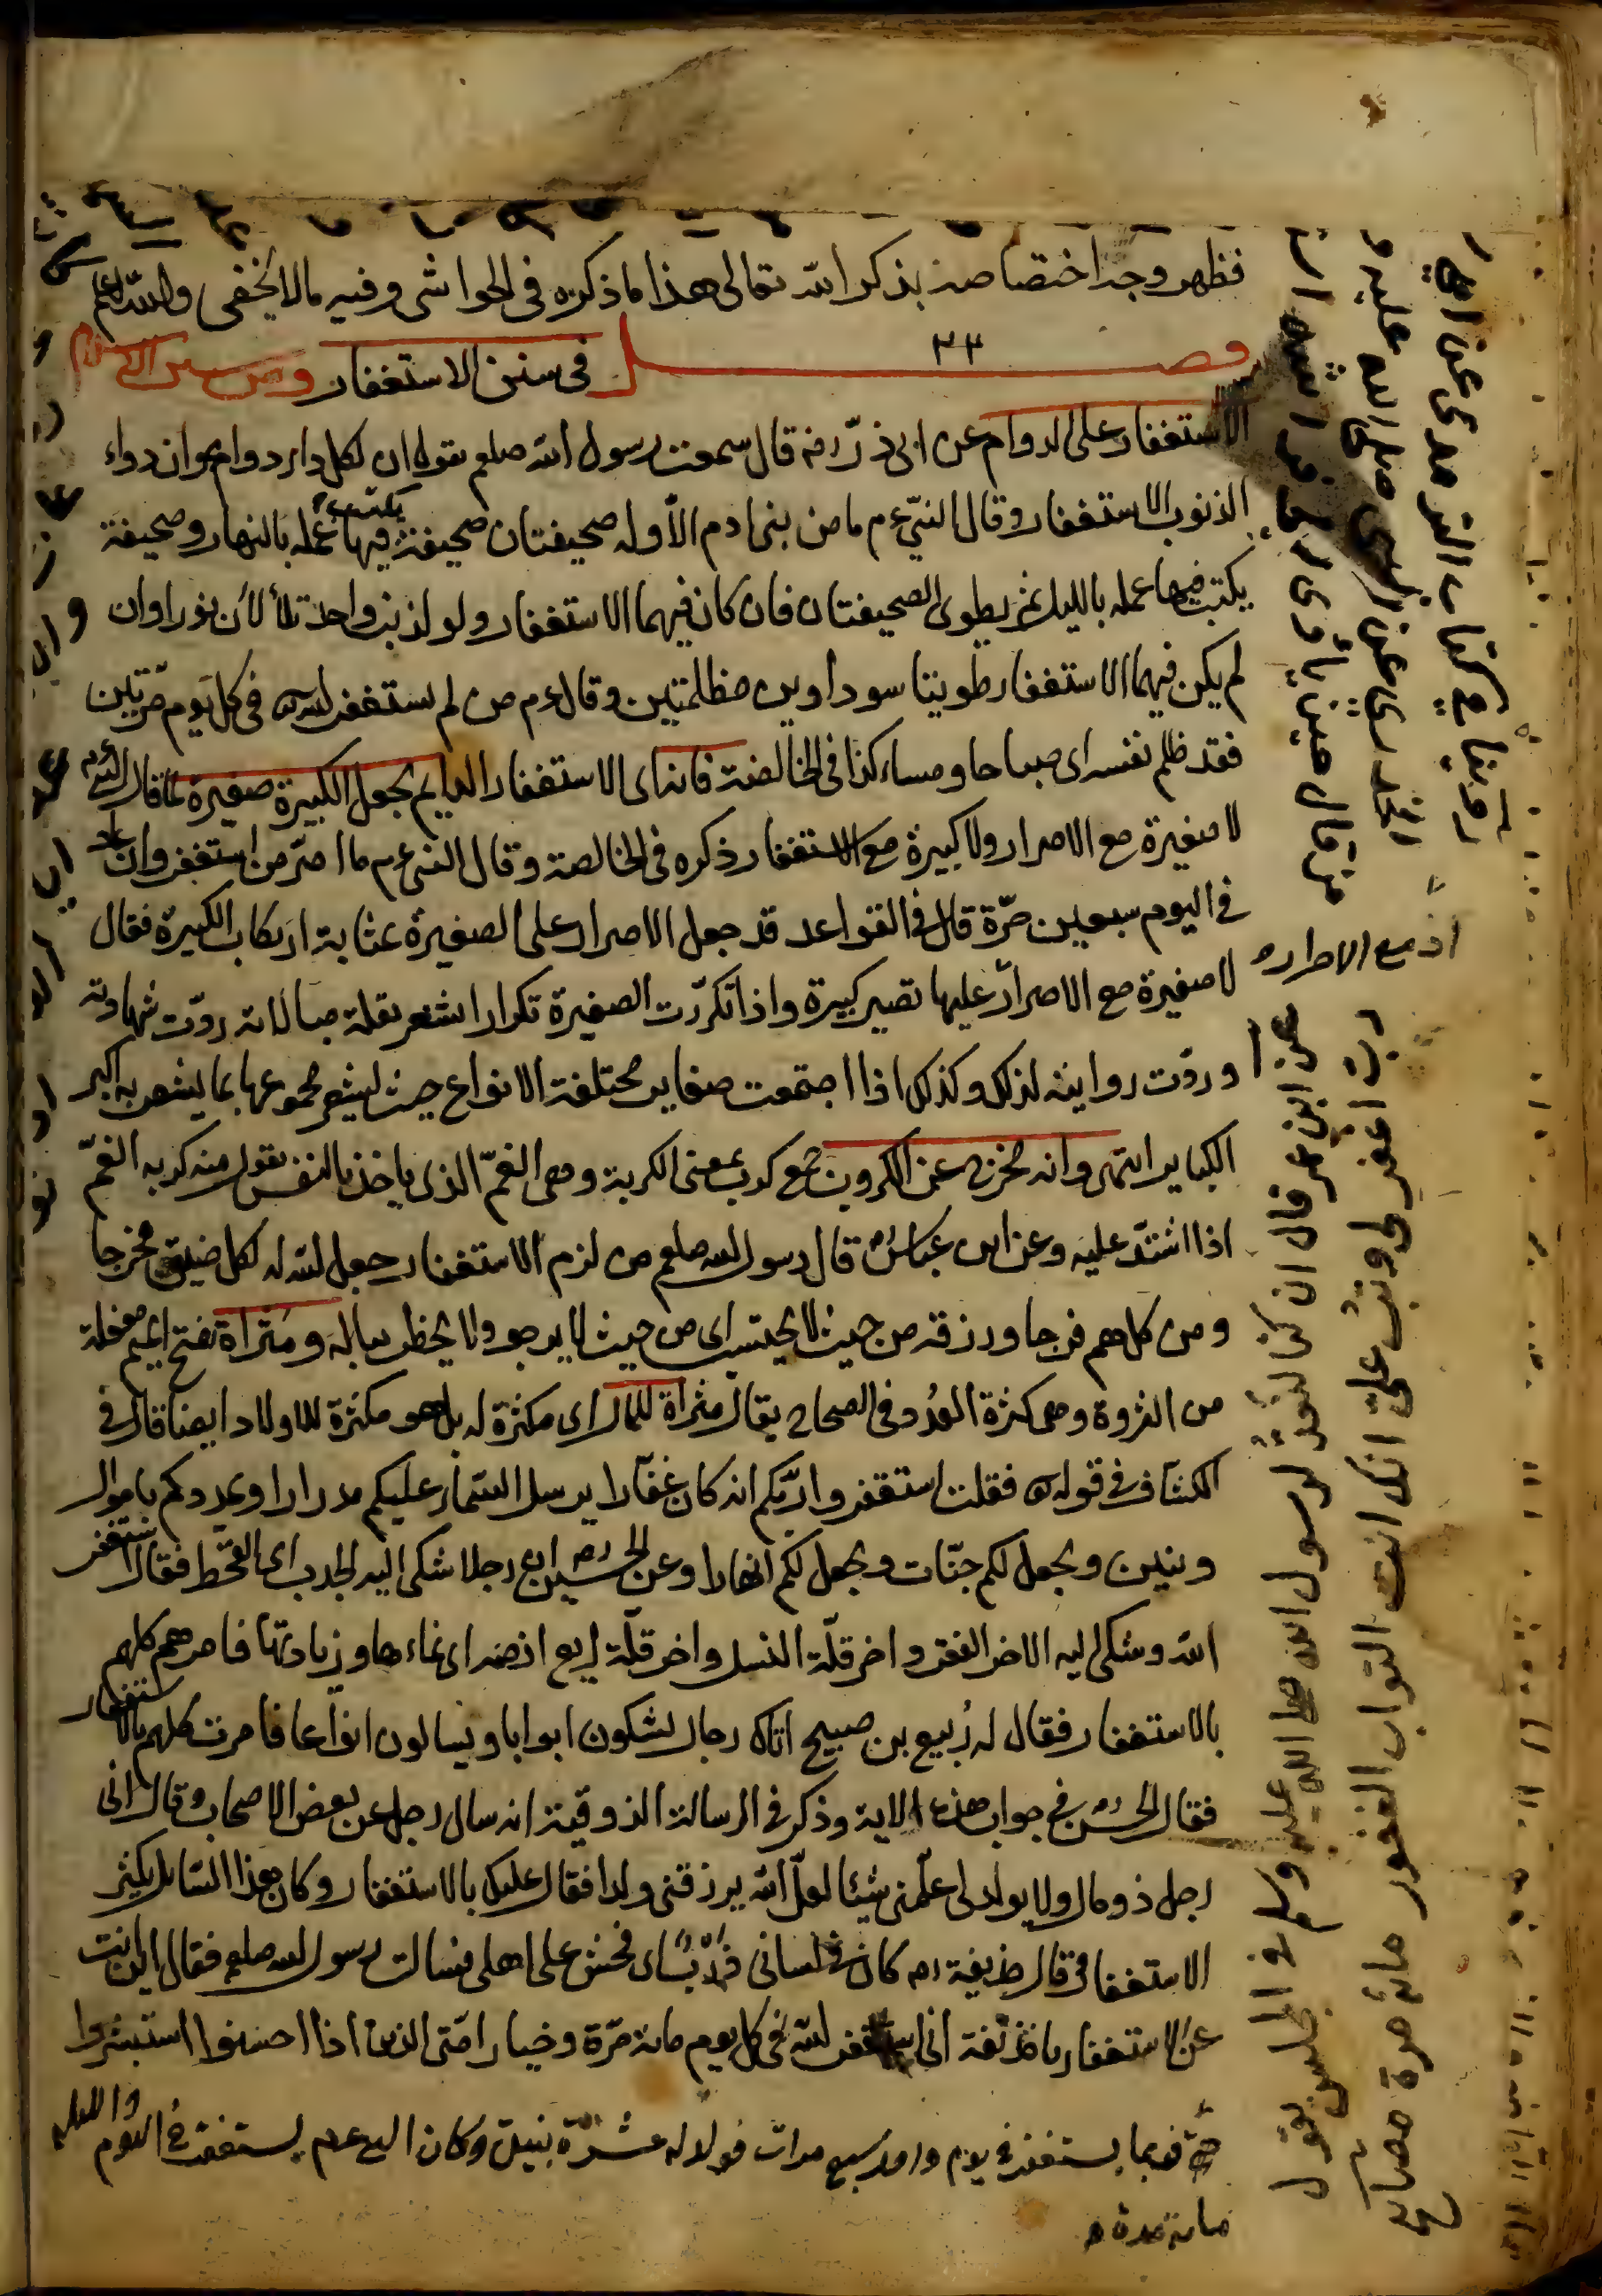 فظهر وجه اختصاصه بذكر الله تعالى هذا ما ذكره في الحواشي وفيه ما لا يخفى والله اعلم
فصل ٣٣ في سنن الاستغفار ومن سنن الاسلام
الاستغفار على الدوام عن ابي ذر رضه قال سمعت رسول الله صلعم يقول ان لكل داء دواء وان دواء
الذنوب الاستغفار وقال النبي عم ما من بني ادم الا وله صحيفتان صحيفة يكتب فيها عمله بالنهار وصحيفة
يكتب فيها عمله بالليل ثم يطوى الصحيفتان فان كان فيهما الاستغفار ولو لذنب واحد تلألأن نورا وان
لم يكن فيهما الاستغفار طويتا سوداوين مظلمتين وقال عم من لم يستغفر الله في كل يوم مرتين
فقد ظلم نفسه اى صباحا ومساء كذا في الخالصة فانه اى الاستغفار الدايم يجعل الكبيرة صغيرة كما قال النبي عم
لا صغيرة مع الاصرار ولا كبيرة مع الاستغفار ذكره في الخالصة وقال النبي عم ما اصر من استغفر وان عاد
في اليوم سبعين مرة قال في القواعد قد جعل الاصرار على الصغيرة بمثابة ارتكاب الكبيرة فقال
لا صغيرة مع الاصرار عليها تصير كبيرة واذا تكررت الصغيرة تكرارا يشعر بقلة مبالاته ردت شهادته
وردت روايته لذلك وكذلك اذا اجتمعت صغاير مختلفة الانواع حيث يشعر مجموعها بما يشعر به اكبر
الكباير انتهى وانه مخرج عن الكروب جمع كرب بمعنى الكربة وهى الغم الذى ياخذ بالنفس يقول منه كربه الغم
اذا اشتد عليه وعن ابن عباس رض قال رسول الله صلعم من لزم الاستغفار جعل الله له لكل ضيق مخرجا
ومن كل هم فرجا ورزقه من حيث لا يحتسب اى من حيث لا يرجو ولا يخطر بباله ومثراة بفتح الميم مفعلة
من الثروة وهى كثرة العدد وفي الصحاح يقال مثراة للمال اى مكثرة له بل هو مكثرة للاولاد ايضا قال في
الكشاف في قوله فقلت استغفروا ربكم انه كان غفارا يرسل السماء عليكم مدرارا ويمددكم باموال
وبنين ويجعل لكم جنات ويجعل لكم انهارا وعن الحسن رض ان رجلا شكى اليه الجدب اى القحط فقال استغفر
الله وشكى اليه الاخر الفقر واخر قلة النسل واخر قلة ريع ارضه اى نماءها وزيادتها فامرهم كلهم
بالاستغفار فقال له ربيع بن صبيح اتاك رجال يشكون ابوابا ويسالون انواعا فامرت كلهم بالاستغفار
فقال الحسن رض في جواب هذه الاية وذكر في الرسالة الذوقية انه سال رجل عن بعض الاصحاب وقال انى
رجل ذو مال ولا يولد لى علمنى شيئا لعل الله يرزقنى ولدا فقال عليك بالاستغفار وكان هذا السايل يكثر
الاستغفار قال حذيفة رض كان في لسانى ذرب اى فحش على اهلى فسالت رسول الله صلعم فقال اين انت
عن الاستغفار يا حذيفة انى استغفر الله في كل يوم مائة مرة وخيار امتى الذين اذا احسنوا استبشروا
فربما يستغفر في يوم واحد سبع مرات فولد له عشرة بنين وكان النبي عم يستغفر في اليوم والليلة
مائة مرة
روينا في كتاب الترمذى عن ابي
صلى الله عليه و
من قال حين يأوى الى فراشه
اذ مع الاصرار
عن ابن عمر قال ان كنا لنعد لرسول الله صلى الله عليه وسلم في المجلس يقول
رب اغفر لى وتب على انك انت التواب الغفور مائة مرة مصابيح